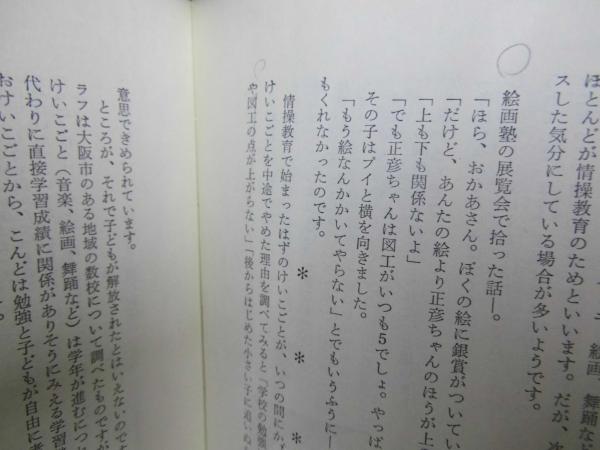 絵画、舞踊など
ほとんどが情操教育のためといいます。だが、次
スした気分にしている場合が多いようです。
絵画塾の展覧会で拾った話──。
「ほら、おかあさん。ぼくの絵に銀賞がついてい
「だけど、あんたの絵より正彦ちゃんのほうが上
「上も下も関係ないよ」
「でも正彦ちゃんは図工がいつも5でしょ。やっぱ
その子はプイと横を向きました。
「もう絵なんかかいてやらない」とでもいうふうに──
もくれなかったのです。
* * *
情操教育で始まったはずのけいこごとが、いつの間にか
けいこごとを中途でやめた理由を調べてみると「学校の勉強
や図工の点が上がらない」「後からはじめた小さい子に追いぬ
意思できめられています。
ところが、それで子どもが解放されたとはいえないので
ラフは大阪市のある地域の数校について調べたものですが
けいこごと（音楽、絵画、舞踊など）は学年が進むにつ
代わりに直接学習成績に関係がありそうにみえる学習
おけいこごとから、こんどは勉強と子どもが自由に